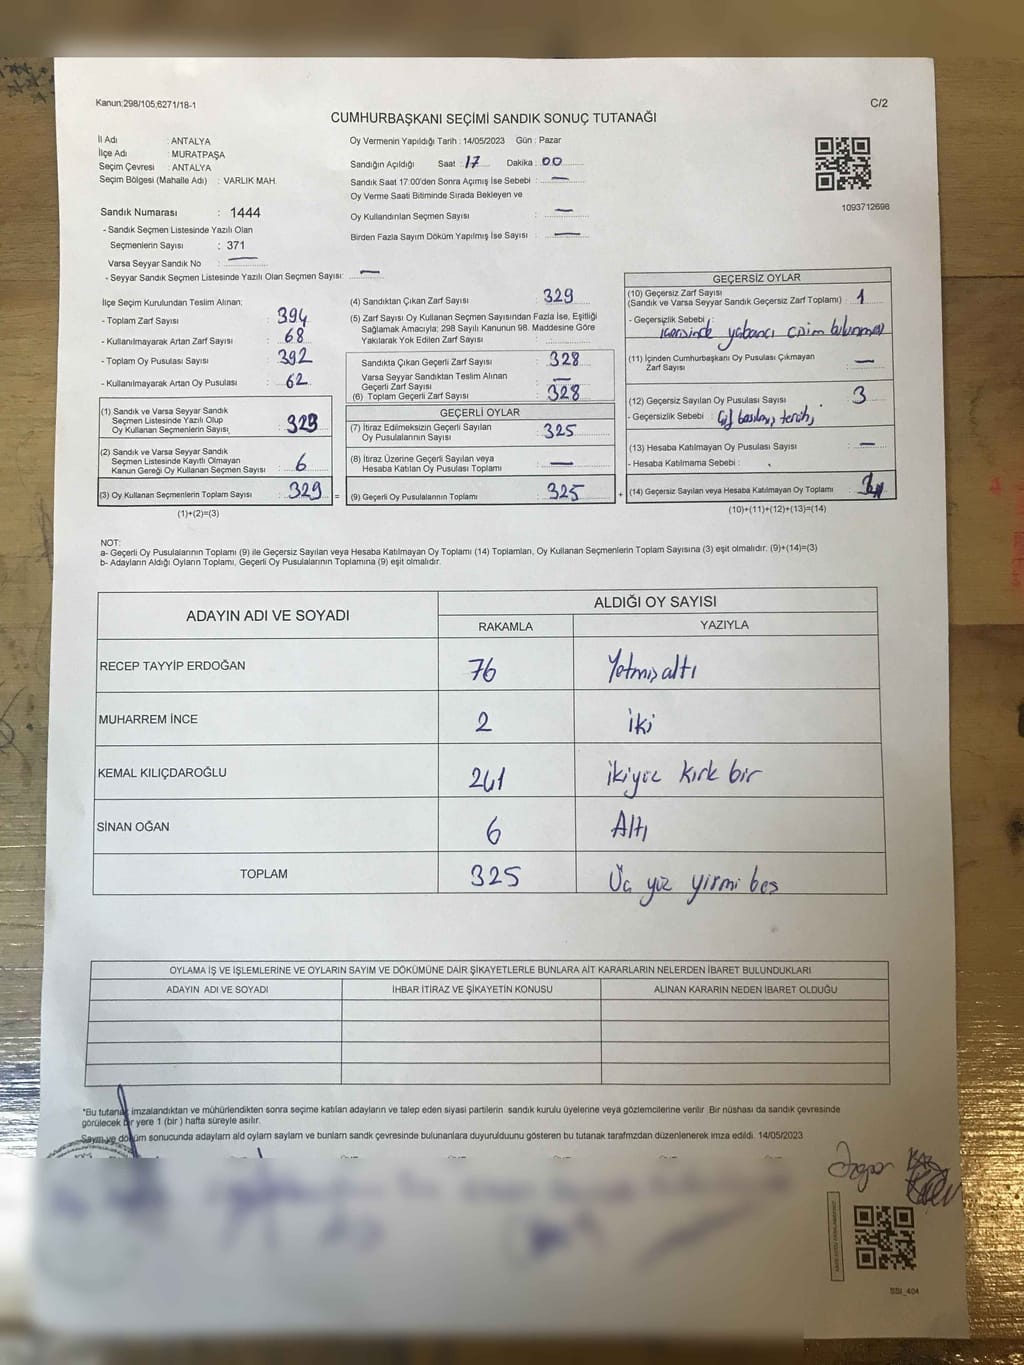 Kanun:298/105,6271/18-1
C/2
CUMHURBAŞKANI SEÇİMİ SANDIK SONUÇ TUTANAĞI
İl Adı : ANTALYA
İlçe Adı : MURATPAŞA
Seçim Çevresi : ANTALYA
Seçim Bölgesi (Mahalle Adı) : VARLIK MAH.
Oy Vermenin Yapıldığı Tarih : 14/05/2023 Gün : Pazar
Sandığın Açıldığı Saat : 17 Dakika : 00
Sandık Saat 17:00'den Sonra Açımış İse Sebebi : —
Oy Verme Saati Bitiminde Sırada Bekleyen ve
Oy Kullandırılan Seçmen Sayısı : —
Birden Fazla Sayım Döküm Yapılmış İse Sayısı : —
1093712698
Sandık Numarası : 1444
- Sandık Seçmen Listesinde Yazılı Olan
Seçmenlerin Sayısı : 371
Varsa Seyyar Sandık No : —
- Seyyar Sandık Seçmen Listesinde Yazılı Olan Seçmen Sayısı: —
İlçe Seçim Kurulundan Teslim Alınan;
- Toplam Zarf Sayısı : 394
- Kullanılmayarak Artan Zarf Sayısı : 68
- Toplam Oy Pusulası Sayısı : 392
- Kullanılmayarak Artan Oy Pusulası : 62
(1) Sandık ve Varsa Seyyar Sandık
Seçmen Listesinde Yazılı Olup
Oy Kullanan Seçmenlerin Sayısı : 323
(2) Sandık ve Varsa Seyyar Sandık
Seçmen Listesinde Kayıtlı Olmayan
Kanun Gereği Oy Kullanan Seçmen Sayısı : 6
(3) Oy Kullanan Seçmenlerin Toplam Sayısı : 329 =
(1)+(2)=(3)
(4) Sandıktan Çıkan Zarf Sayısı : 329
(5) Zarf Sayısı Oy Kullanan Seçmen Sayısından Fazla İse, Eşitliği
Sağlamak Amacıyla; 298 Sayılı Kanunun 98. Maddesine Göre
Yakılarak Yok Edilen Zarf Sayısı :
Sandıkta Çıkan Geçerli Zarf Sayısı : 328
Varsa Seyyar Sandıktan Teslim Alınan
Geçerli Zarf Sayısı : —
(6) Toplam Geçerli Zarf Sayısı : 328
GEÇERLİ OYLAR
(7) İtiraz Edilmeksizin Geçerli Sayılan
Oy Pusulalarının Sayısı : 325
(8) İtiraz Üzerine Geçerli Sayılan veya
Hesaba Katılan Oy Pusulası Toplamı : —
(9) Geçerli Oy Pusulalarının Toplamı : 325 +
GEÇERSİZ OYLAR
(10) Geçersiz Zarf Sayısı
(Sandık ve Varsa Seyyar Sandık Geçersiz Zarf Toplamı) : 1
- Geçersizlik Sebebi :
içerisinde yabancı cisim bulunması
(11) İçinden Cumhurbaşkanı Oy Pusulası Çıkmayan
Zarf Sayısı : —
(12) Geçersiz Sayılan Oy Pusulası Sayısı : 3
- Geçersizlik Sebebi : Çif basılmış tercih
(13) Hesaba Katılmayan Oy Pusulası Sayısı : —
- Hesaba Katılmama Sebebi :
(14) Geçersiz Sayılan veya Hesaba Katılmayan Oy Toplamı :
(10)+(11)+(12)+(13)=(14)
NOT:
a- Geçerli Oy Pusulalarının Toplamı (9) ile Geçersiz Sayılan veya Hesaba Katılmayan Oy Toplamı (14) Toplamları, Oy Kullanan Seçmenlerin Toplam Sayısına (3) eşit olmalıdır. (9)+(14)=(3)
b- Adayların Aldığı Oyların Toplamı, Geçerli Oy Pusulalarının Toplamına (9) eşit olmalıdır.
ADAYIN ADI VE SOYADI
ALDIĞI OY SAYISI
RAKAMLA YAZIYLA
RECEP TAYYİP ERDOĞAN 76 Yetmiş altı
MUHARREM İNCE 2 iki
KEMAL KILIÇDAROĞLU 241 ikiyüz kırk bir
SİNAN OĞAN 6 Altı
TOPLAM 325 Üç yüz yirmi beş
OYLAMA İŞ VE İŞLEMLERİNE VE OYLARIN SAYIM VE DÖKÜMÜNE DAİR ŞİKAYETLERLE BUNLARA AİT KARARLARIN NELERDEN İBARET BULUNDUKLARI
ADAYIN ADI VE SOYADI İHBAR İTİRAZ VE ŞİKAYETİN KONUSU ALINAN KARARIN NEDEN İBARET OLDUĞU
*Bu tutanak imzalandıktan ve mühürlendikten sonra seçime katılan adayların ve talep eden siyasi partilerin sandık kurulu üyelerine veya gözlemcilerine verilir .Bir nüshası da sandık çevresinde
görülecek bir yere 1 (bir ) hafta süreyle asılır.
Sayım ve döküm sonucunda adayların ald oyların sayların ve bunların sandk çevresinde bulunanlara duyurulduunu gösteren bu tutanak tarafmzdan düzenlenerek imza edildi. 14/05/2023
SSI_404